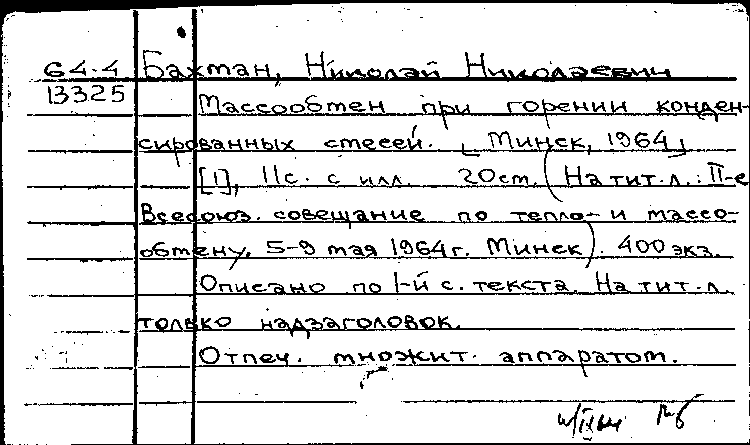 64-4 Бахман, Николай Николаевич
13325
Массообмен при горении конден-
сированных смесей. [Минск, 1964]
[1], 11с. с илл. 20см. (На тит.л.: II-е
Всесоюз. совещание по тепло- и массо-
обмену. 5-9 мая 1964г. Минск). 400 экз.
Описано по 1-й с. текста. На тит.л.
только надзаголовок.
Отпеч. множит. аппаратом.